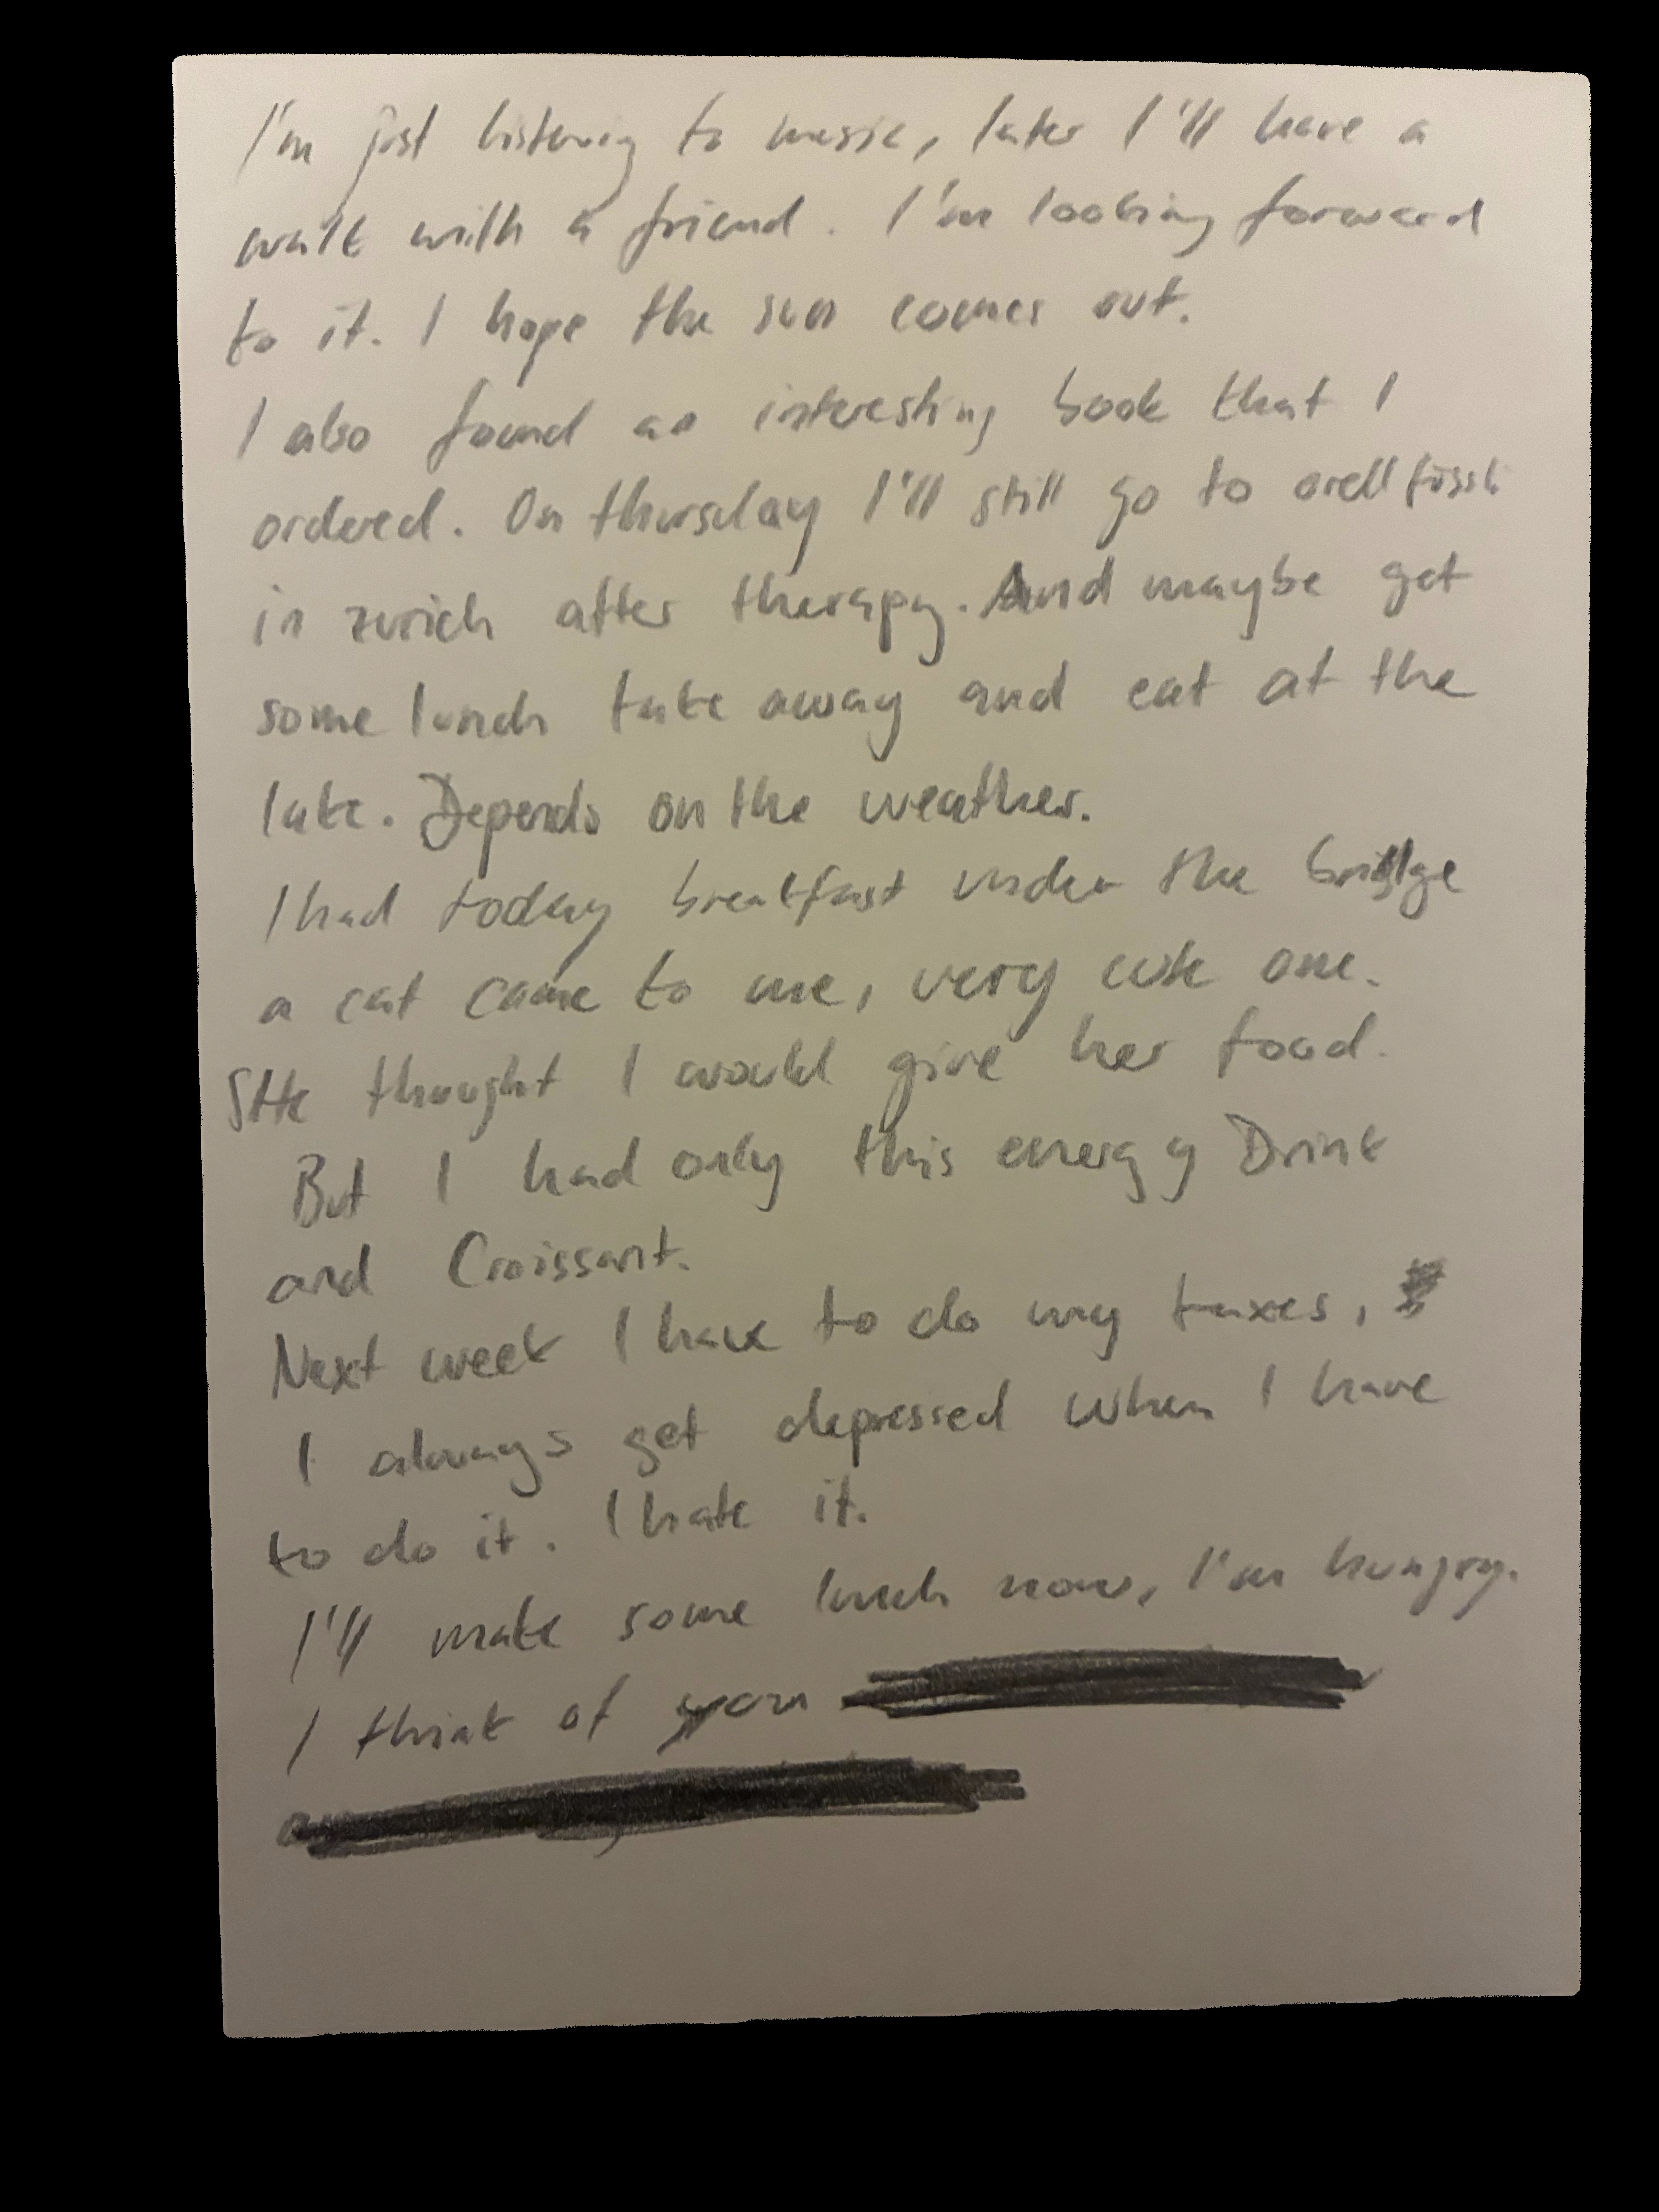 I'm just listening to music, later I'll have a
walk with a friend. I'm looking forward
to it. I hope the sun comes out.
I also found an interesting book that I
ordered. On thursday I'll still go to orell füssli
in zurich after therapy. And maybe get
some lunch take away and eat at the
lake. Depends on the weather.
I had today breakfast under the bridge
a cat came to me, very cute one.
SHe thought I would give her food.
But I had only this energy Drink
and Croissant.
Next week I have to do my taxes,
I always get depressed when I have
to do it. I hate it.
I'll make some lunch now, I'm hungry.
I think of you